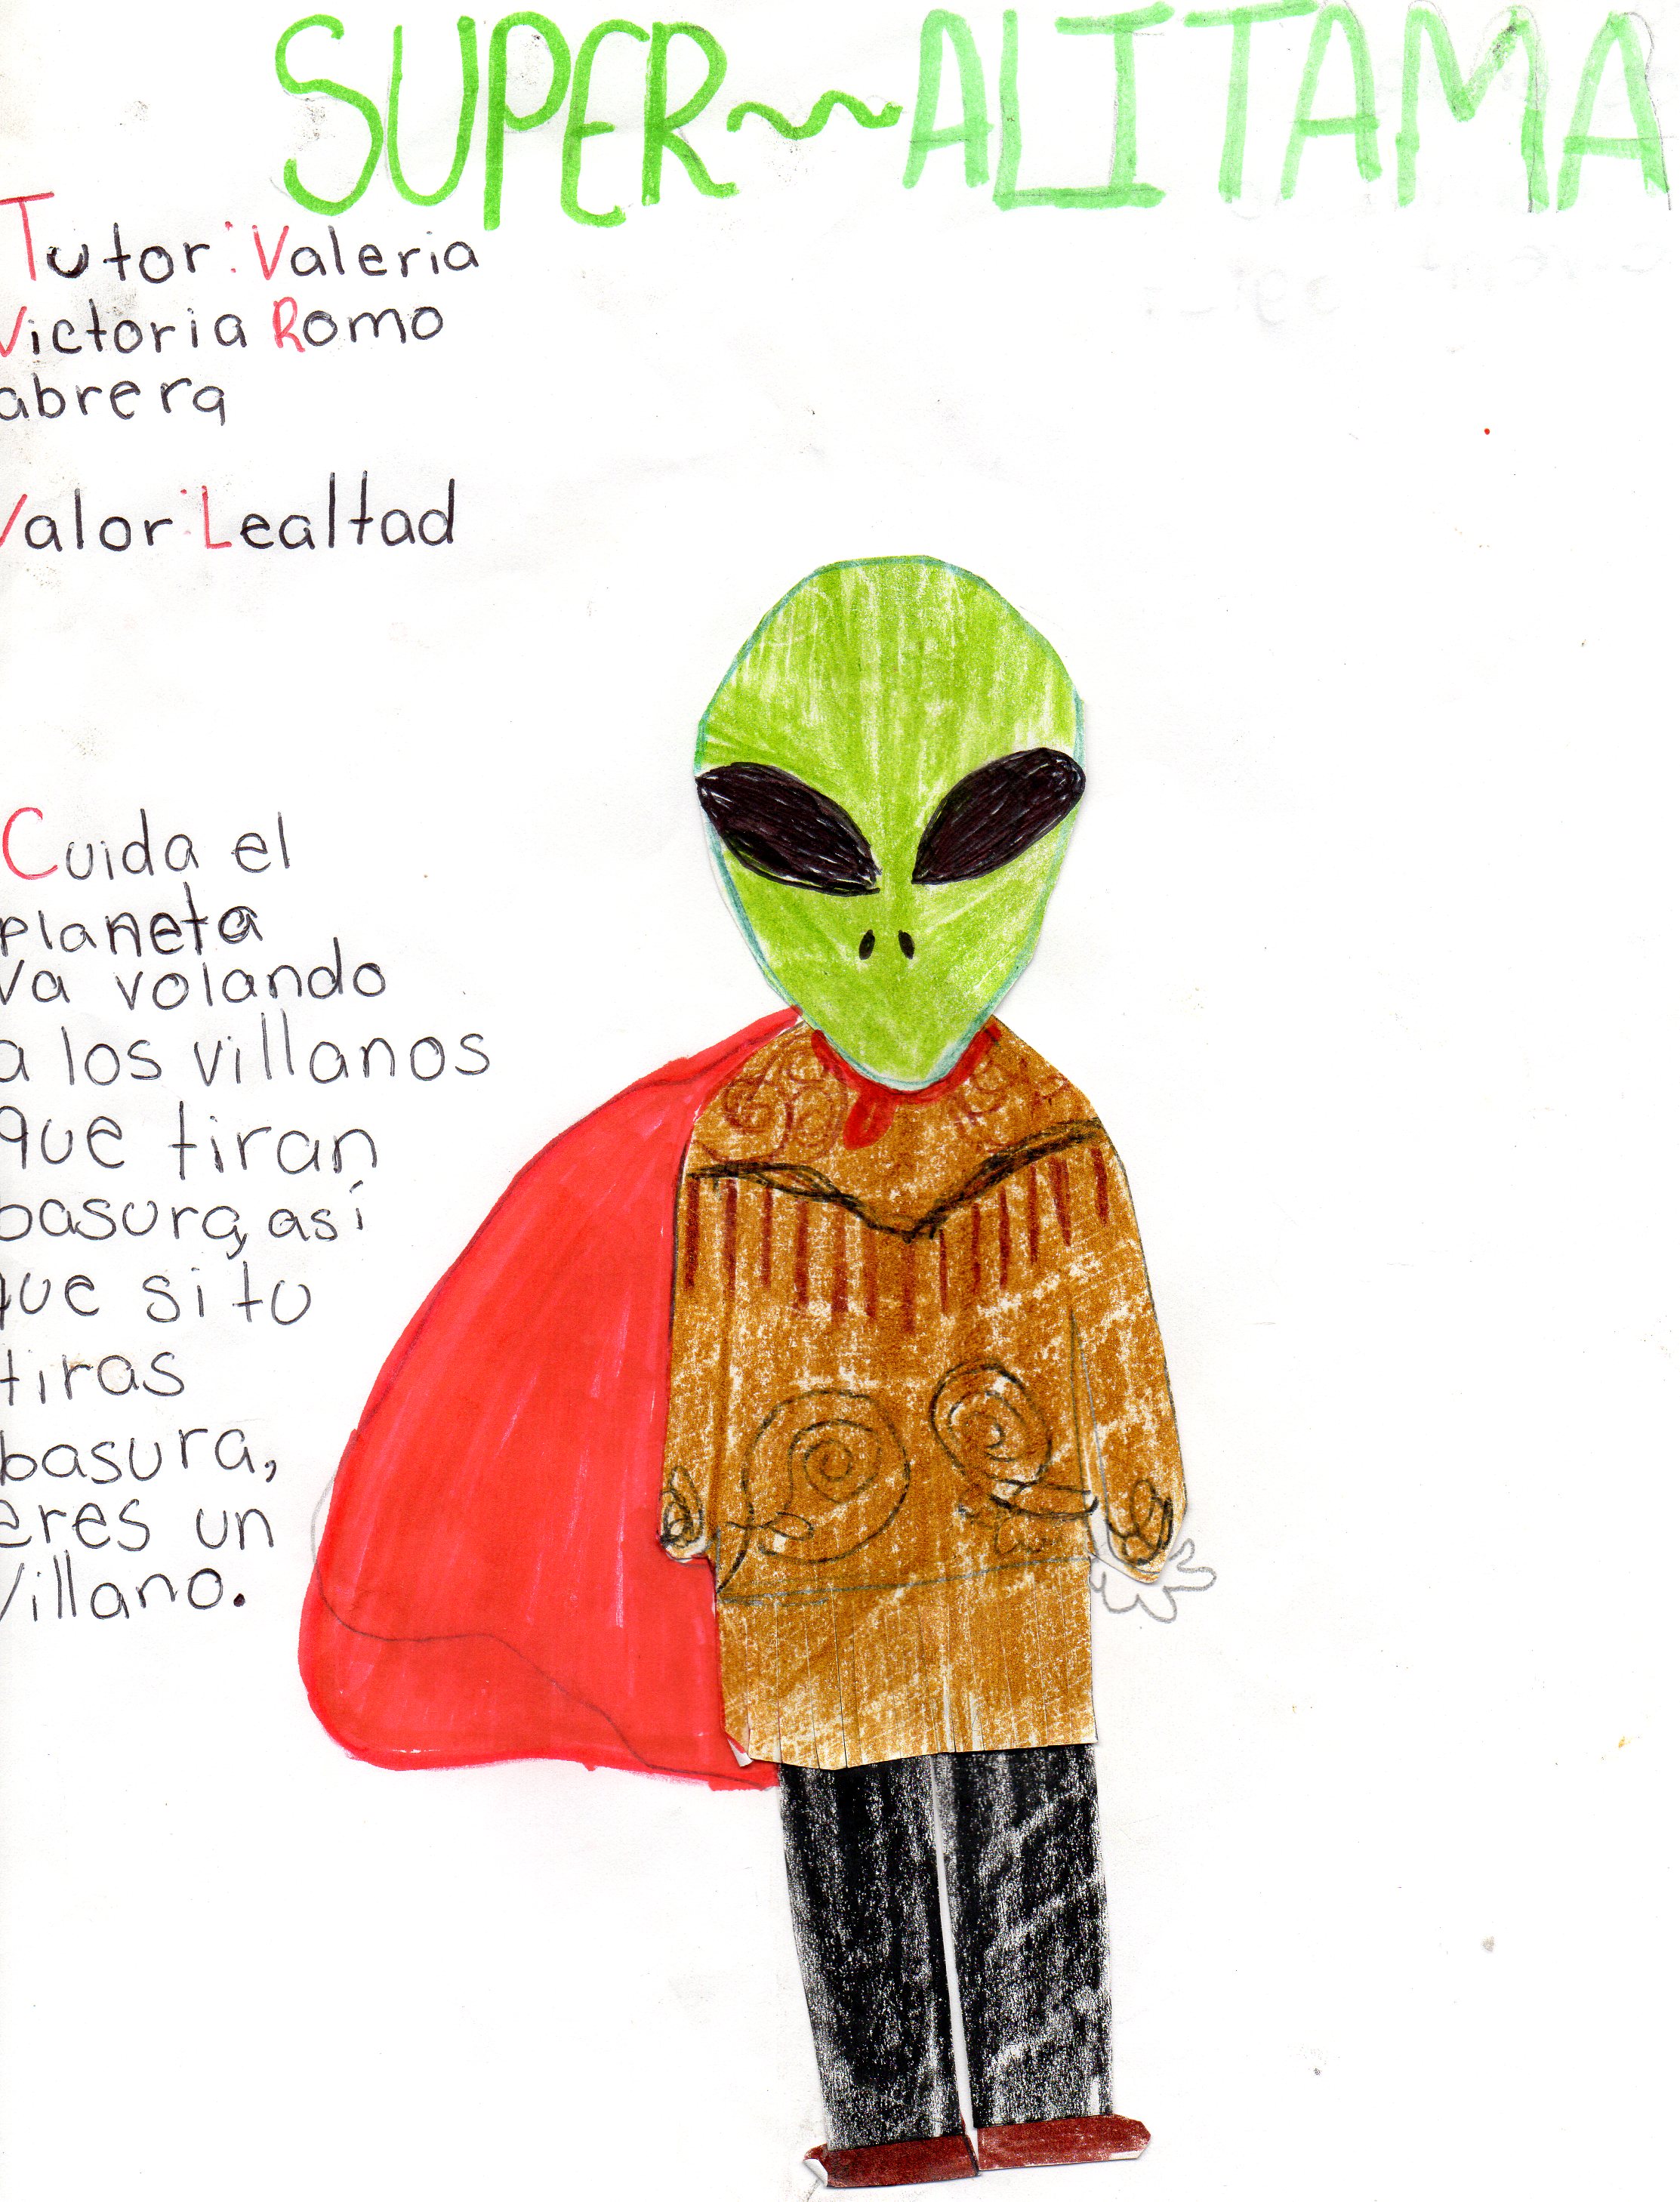 SUPER~ALITAMA
Tutor: Valeria
Victoria Romo
abrera
Valor: Lealtad
Cuida el
planeta
va volando
a los villanos
que tiran
basura, así
que si tu
tiras
basura,
eres un
Villano.